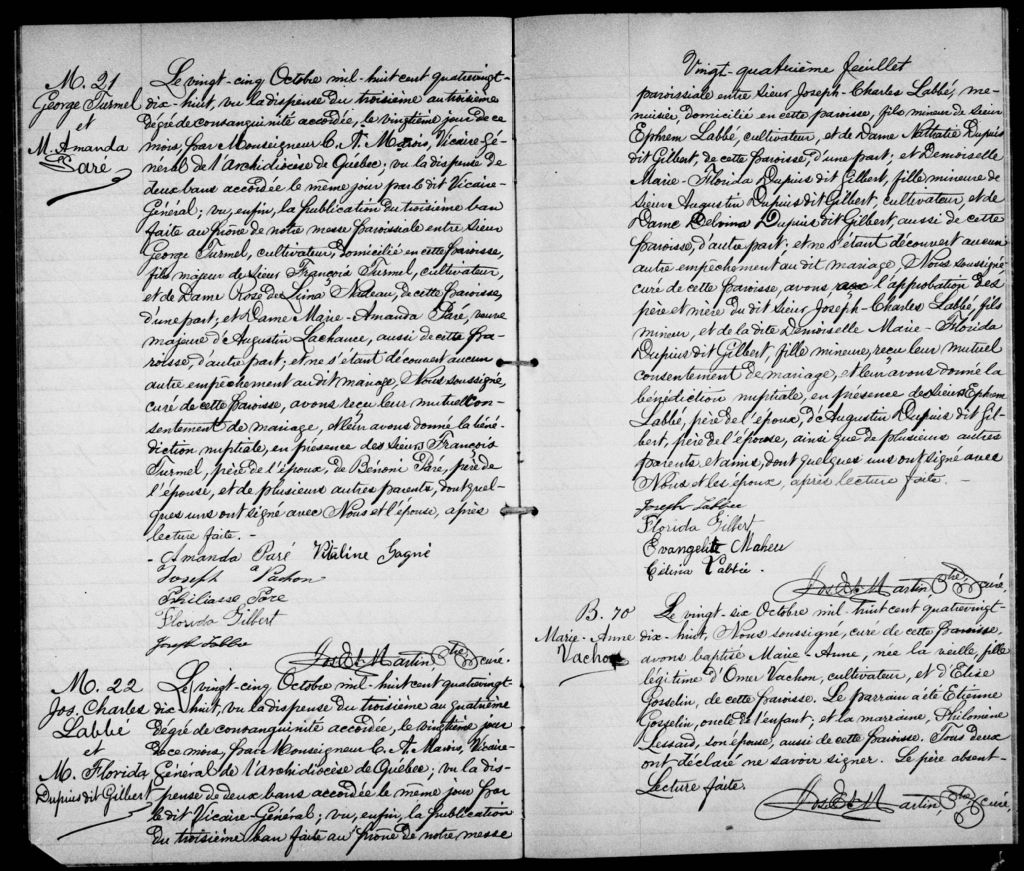 M. 21
George Turmel
et
M. Amanda
Paré
Le vingt-cinq Octobre mil-huit cent quatrevingt-
dix-huit, vu la dispense du troisième au troisième
dégré de consanguinité accordée, le vingtième jour de ce
mois, par Monseigneur C. A. Marois, Vicaire Gé-
néral de l'Archidiocèse de Québec; vu la dispense de
deux bans accordée le même jour par le dit Vicaire-
Général; vu, enfin, la publication du troisième ban
faite au prône de notre messe paroissiale entre Sieur
George Turmel, cultivateur, domicilié en cette paroisse,
fils majeur de Sieur François Turmel, cultivateur,
et de Dame Rose de Lima Nadeau, de cette paroisse,
d'une part; et Dame Marie-Amanda Paré, veuve
majeure d'Augustin Lachance, aussi de cette pa-
roisse, d'autre part; et ne s'étant découvert aucun
autre empêchement au dit mariage, Nous soussigné,
curé de cette paroisse, avons reçu leur mutuel con-
sentement de mariage, et leur avons donné la béné-
diction nuptiale, en présence des Sieurs François
Turmel, père de l'époux, de Bénoni Paré, père de
l'épouse, et de plusieurs autres parents, dont quel-
ques uns ont signé avec Nous et l'épouse, après
lecture faite. -
- Amanda Paré Vitaline Gagné
Joseph Vachon
Philiasse Paré
Florida Gilbert
Joseph Labbée
Jos Et. Martin, Ptre, curé.
M. 22
Jos. Charles
Labbé
et
M. Florida
Dupuis dit Gilbert
Le vingt-cinq Octobre mil-huit cent quatrevingt-
dix-huit, vu la dispense du troisième au quatrième
dégré de consanguinité accordée, le vingtième jour
de ce mois, par Monseigneur C. A. Marois, Vicaire-
Général de l'Archidiocèse de Québec; vu la dis-
pense de deux bans accordée le même jour par
le dit Vicaire-Général; vu, enfin, la publication
du troisième ban faite au prône de notre messe
Vingt-quatrième feuillet
paroissiale entre Sieur Joseph-Charles Labbé, me-
nuisier, domicilié en cette paroisse, fils mineur de Sieur
Ephrem Labbé, cultivateur, et de Dame Nathalie Dupuis
dit Gilbert, de cette paroisse, d'une part; et Demoiselle
Marie-Florida Dupuis dit Gilbert, fille mineure de
Sieur Augustin Dupuis dit Gilbert, cultivateur, et de
Dame Delvina Dupuis dit Gilbert, aussi de cette
paroisse, d'autre part; et ne s'étant découvert aucun
autre empêchement au dit mariage, Nous soussigné,
curé de cette paroisse, avons l'approbation des
père et mère du dit Sieur Joseph-Charles Labbé, fils
mineur, et de la dite Demoiselle Marie-Florida
Dupuis dit Gilbert, fille mineure, reçu leur mutuel
consentement de mariage, et leur avons donné la
bénédiction nuptiale, en présence des Sieurs Ephrem
Labbé, père de l'époux, d'Augustin Dupuis dit Gil-
bert, père de l'épouse, ainsi que de plusieurs autres
parents et amis, dont quelques uns ont signé avec
Nous et les époux, après lecture faite. -
Joseph Labbée
Florida Gilbert
Evangeliste Maheu
Célina Labbée.
Jos Et. Martin, Ptre, curé.
B. 70
Marie-Anne
Vachon
Le vingt-six Octobre mil-huit cent quatrevingt-
dix-huit, Nous soussigné, curé de cette paroisse,
avons baptisé Marie-Anne, née la veille, fille
légitime d'Omer Vachon, cultivateur, et d'Elise
Gosselin, de cette paroisse. Le parrain a été Etienne
Gosselin, oncle de l'enfant; et la marraine, Philomène
Lessard, son épouse, aussi de cette paroisse. Tous deux
ont déclaré ne savoir signer. Le père absent-
Lecture faite.
Jos Et. Martin, Ptre, curé.